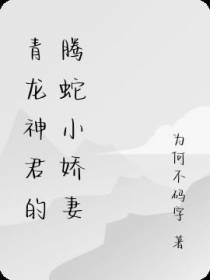 青龙神君的
腾蛇小娇妻
为何不码字 著